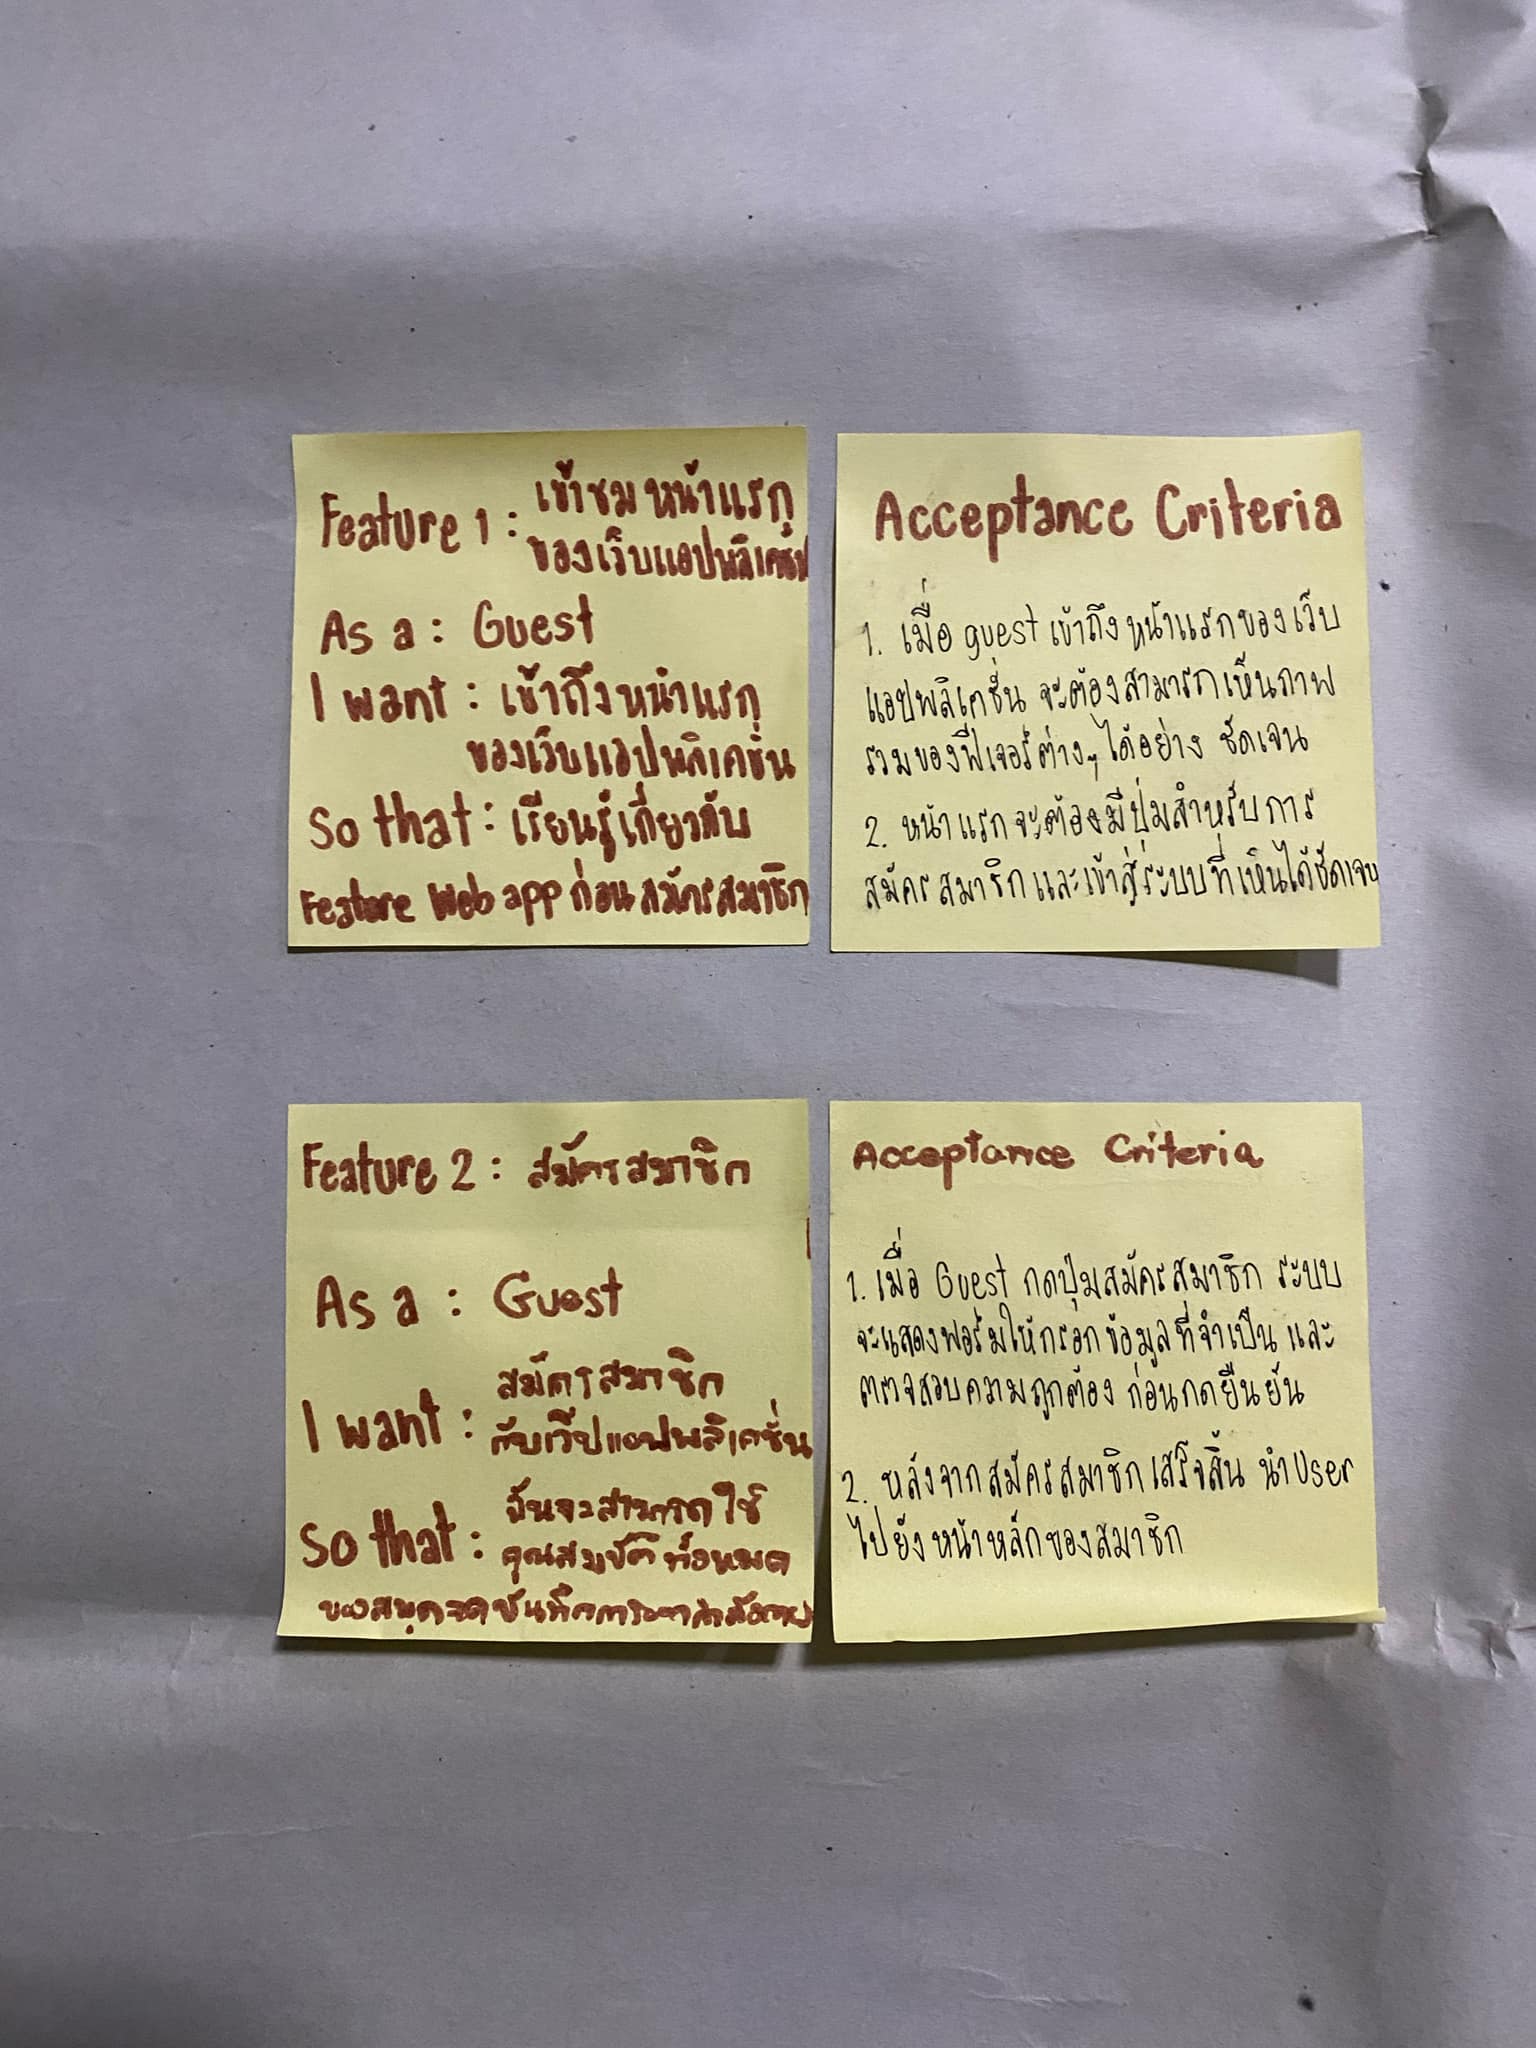 Feature 1 : เข้าชมหน้าแรก
ของเว็บแอปพลิเคชัน
As a : Guest
I want : เข้าถึงหน้าแรก
ของเว็บแอปพลิเคชั่น
So that : เรียนรู้เกี่ยวกับ
Feature Web app ก่อนสมัครสมาชิก
Acceptance Criteria
1. เมื่อ guest เข้าถึงหน้าแรกของเว็บ
แอปพลิเคชั่น จะต้องสามารถเห็นภาพ
รวมของฟีเจอร์ต่างๆ ได้อย่าง ชัดเจน
2. หน้าแรกจะต้องมีปุ่มสำหรับการ
สมัครสมาชิกและเข้าสู่ระบบที่เห็นได้ชัดเจน
Feature 2 : สมัครสมาชิก
As a : Guest
I want : สมัครสมาชิก
กับเว็ปแอฟพลิเคชั่น
So that : ฉันจะสามารถใช้
คุณสมบัติทั้งหมด
ของสมุดจดบันทึกการออกกำลังกาย
Acceptance Criteria
1. เมื่อ Guest กดปุ่มสมัครสมาชิก ระบบ
จะแสดงฟอร์มให้กรอกข้อมูลที่จำเป็น และ
ตรวจสอบความถูกต้อง ก่อนกดยืนยัน
2. หลังจากสมัครสมาชิกเสร็จสิ้น นำ User
ไปยังหน้าหลักของสมาชิก